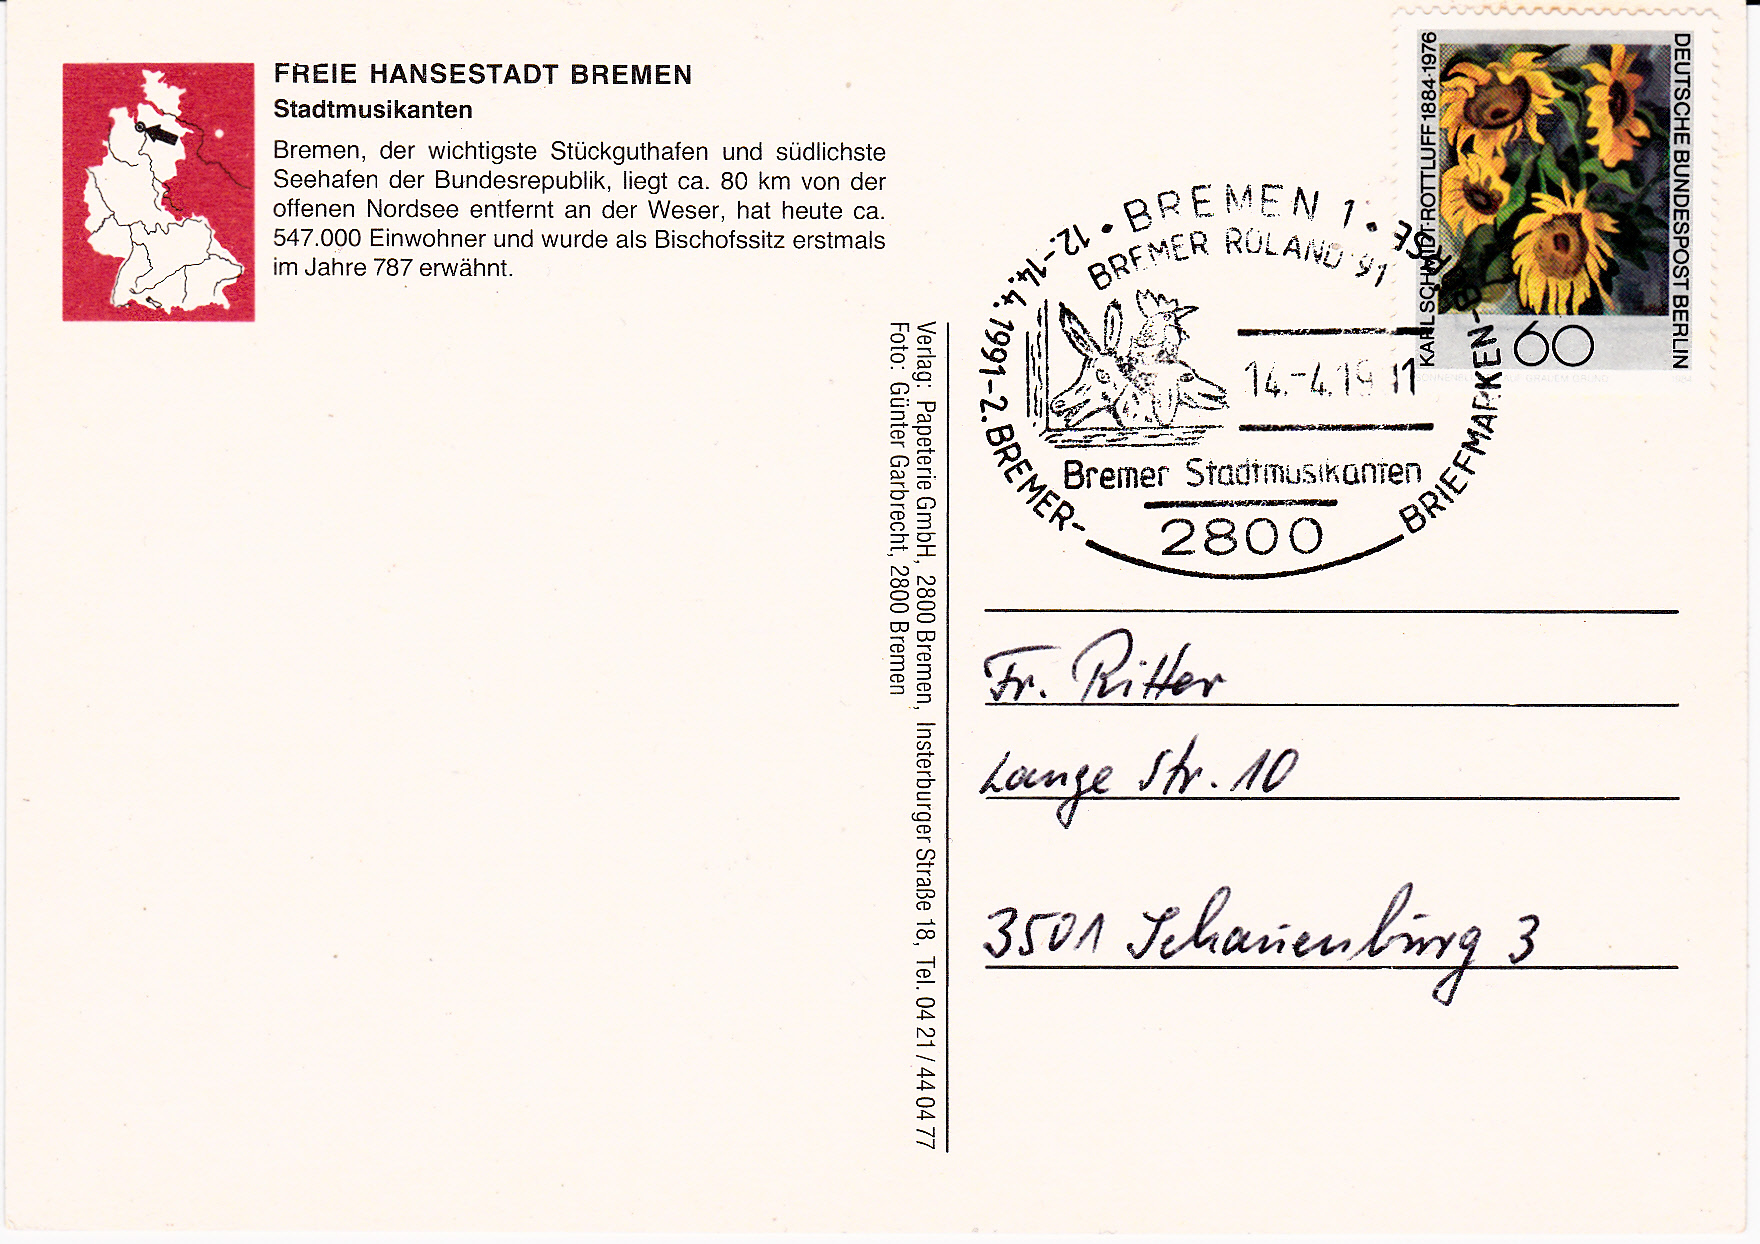 FREIE HANSESTADT BREMEN
Stadtmusikanten
Bremen, der wichtigste Stückguthafen und südlichste
Seehafen der Bundesrepublik, liegt ca. 80 km von der
offenen Nordsee entfernt an der Weser, hat heute ca.
547.000 Einwohner und wurde als Bischofssitz erstmals
im Jahre 787 erwähnt.
Verlag: Papeterie GmbH, 2800 Bremen, Insterburger Straße 18, Tel. 04 21 / 44 04 77
Foto: Günter Garbrecht, 2800 Bremen
KARL SCHMIDT-ROTTLUFF 1884-1976
DEUTSCHE BUNDESPOST BERLIN
60
12.-14.4.1991-2.BREMER-BRIEFMARKEN-BÖRSE
BREMEN 1
BREMER ROLAND '91
14.-4.19 11
Bremer Stadtmusikanten
2800
Fr. Ritter
Lange Str. 10
3501 Schauenburg 3